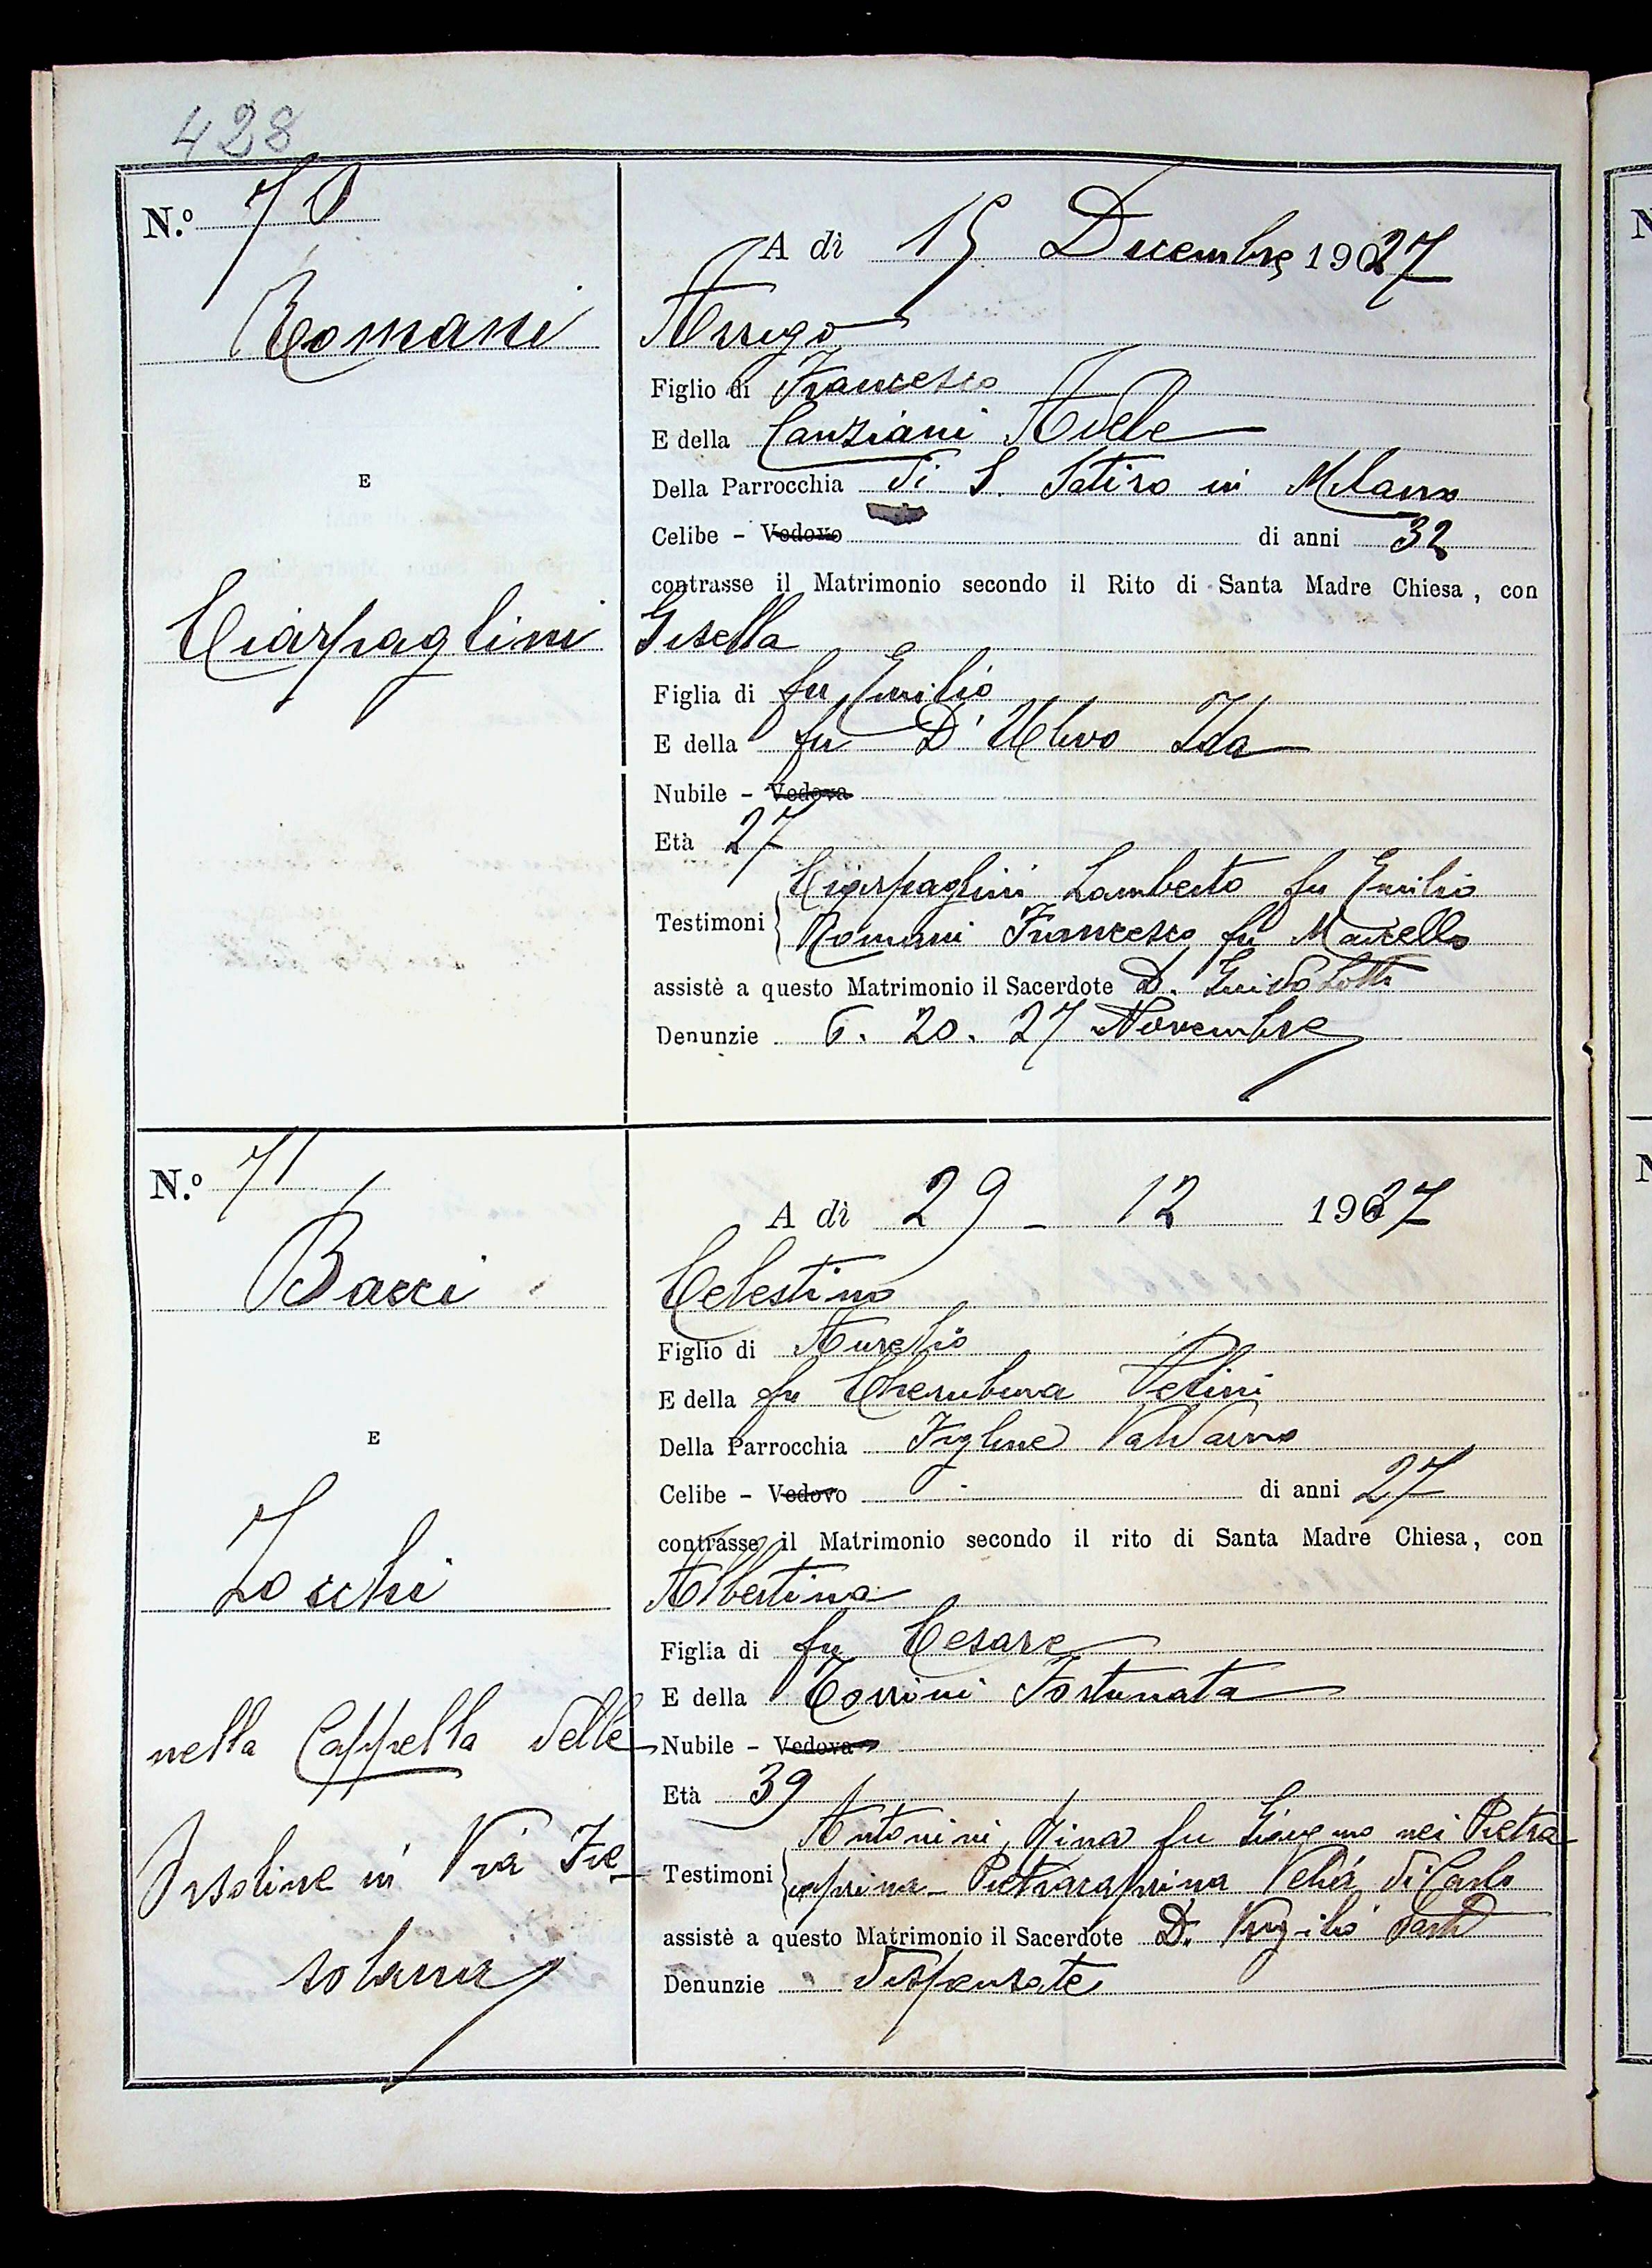 428
N.º 70
A dì 15 Decembre 1927
Romani
Arrigo
Figlio di Francesco
E della Canziani Adele
E
Della Parrocchia di S. Satiro in Milano
Celibe - Vedovo di anni 32
contrasse il Matrimonio secondo il Rito di Santa Madre Chiesa, con
Ciarpaglini
Gisella
Figlia di fu Emilio
E della fu D'Ulivo Ida
Nubile - Vedova
Età 27
Testimoni Ciarpaglini Lamberto fu Emilio
Romani Francesco fu Marcello
assistè a questo Matrimonio il Sacerdote D. Guido Lotti
Denunzie 6. 20. 27 Novembre
N.º 71
A dì 29 - 12 1927
Bacci
Celestino
Figlio di Aurelio
E della fu Cherubina
Della Parrocchia Figline Valdarno
E
Celibe - Vedovo di anni 27
contrasse il Matrimonio secondo il rito di Santa Madre Chiesa, con
Zocchi
Albertina
Figlia di fu Cesare
E della Torrini Fortunata
nella Cappella delle
Nubile - Vedova
Età 39
Orsoline in Via Fie-
solana
Testimoni Antonini Gina fu nei Pietra-
caprina - Pietracaprina Velia di Carlo
assistè a questo Matrimonio il Sacerdote D. Virgilio
Denunzie dispensate